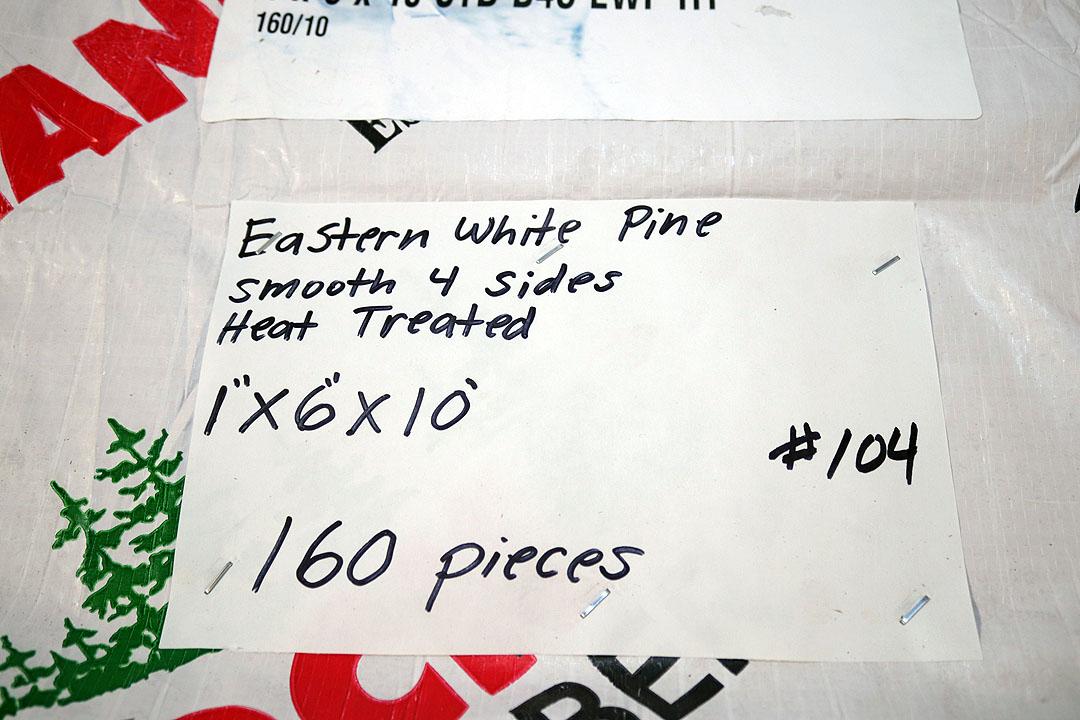 160/10
Eastern White Pine
smooth 4 sides
Heat Treated
1"x6"x10'
#104
160 pieces